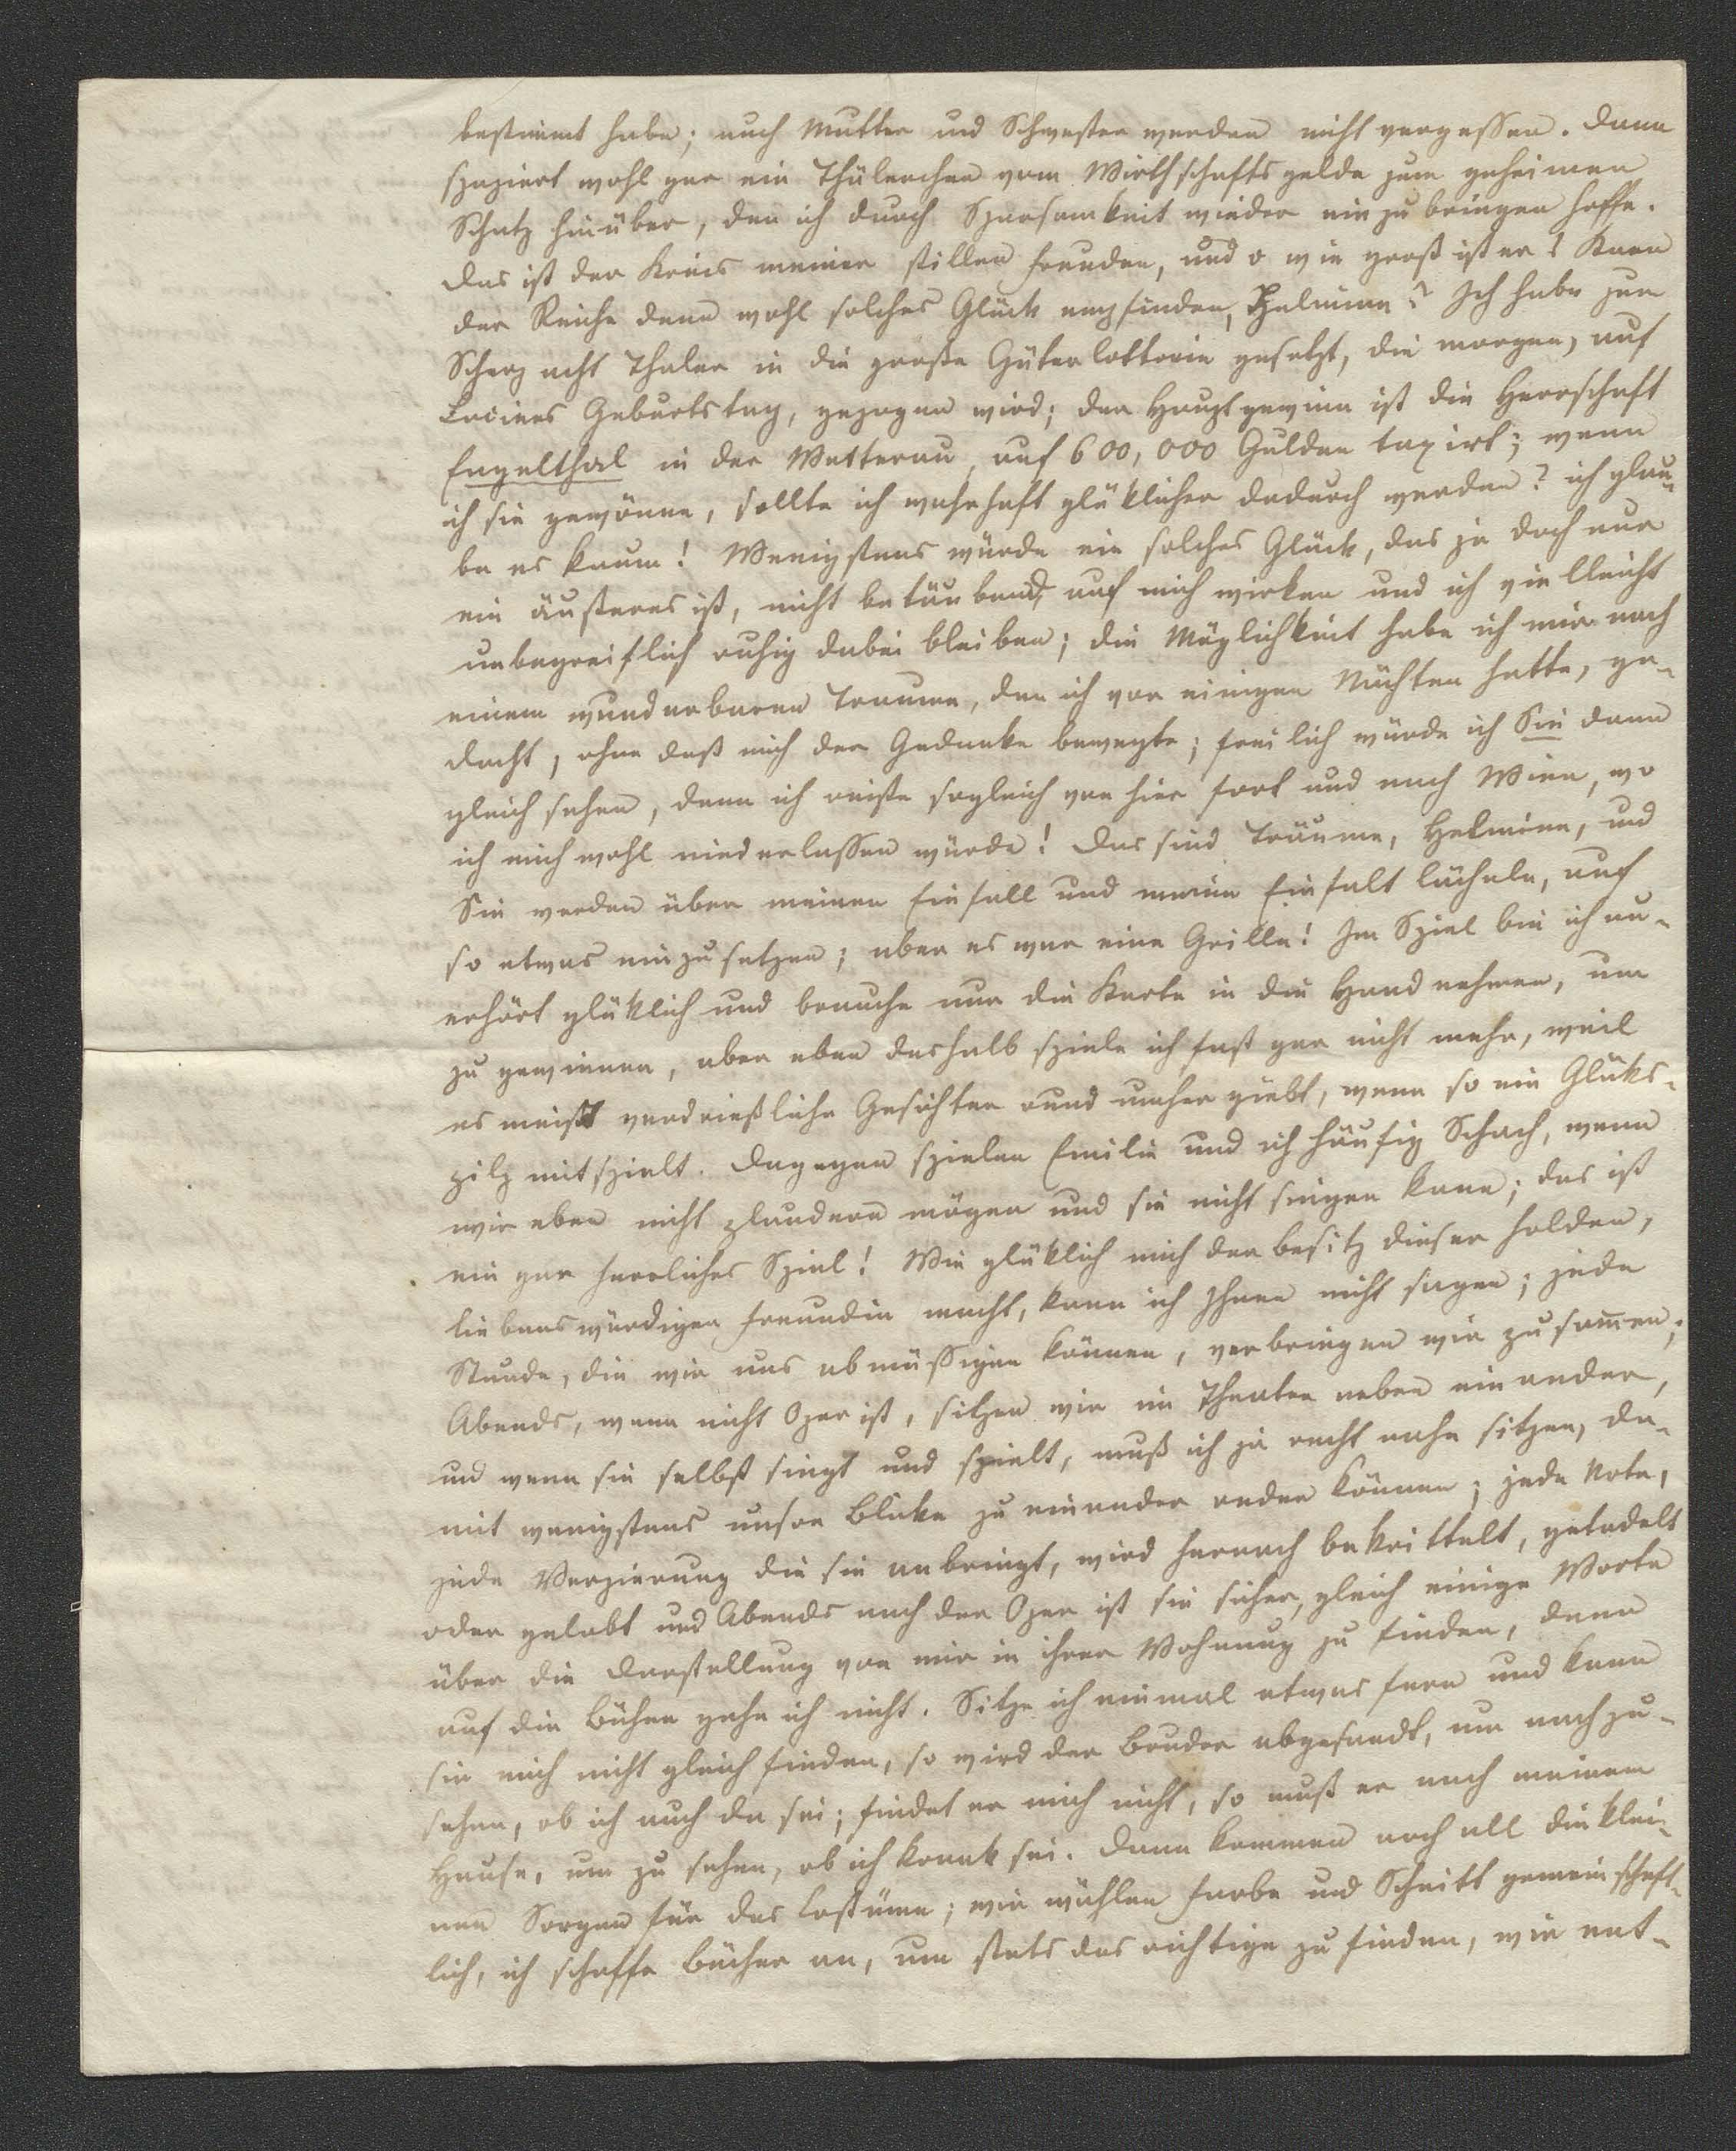 bestimmt habe; auch Mutter und Schwester werden nicht vergessen. Dann
spaziert wohl gar ein Thälerchen vom Wirthschaftsgelde zum geheimen
Schatz hinüber, den ich durch Sparsamkeit wieder einzubringen hoffe.
Das ist der Kreis meiner stillen Freuden, und o wie groß ist er! Kann
der Reiche denn wohl solches Glück empfinden, Helmina? Ich habe zum
Scherz acht Thaler in die große Güterlotterie gesetzt, die morgen, auf
Lucines Geburtstag, gezogen wird; der Hauptgewinn ist die Herrschaft
Engelthal in der Wetterau, auf 600,000 Gulden taxirt; wenn
ich sie gewönne, sollte ich wahrhaft glüklicher dadurch werden? ich glau-
be es kaum! Wenigstens würde ein solches Glück, das ja doch nur
ein äußeres ist, nicht betäubend auf mich wirken und ich vielleicht
unbegreiflich ruhig dabei bleiben; die Möglichkeit habe ich mir nach
einem wunderbaren Traume, den ich vor einigen Nächten hatte, ge-
dacht, ohne daß mich der Gedanke bewegte; freilich würde ich Sie dann
gleich sehen, denn ich reiste sogleich von hier fort und nach Wien, wo
ich mich wohl niederlassen würde! Das sind Träume, Helmina, und
Sie werden über meinen Einfall und meine Einfalt lächeln, auf
so etwas einzusetzen; aber es war eine Grille! Im Spiel bin ich un-
erhört glüklich und brauche nur die Karte in die Hand nehmen, um
zu gewinnen, aber eben deshalb spiele ich fast gar nicht mehr, weil
es meist verdrießliche Gesichter rund umher giebt, wenn so ein Glüks-
pilz mitspielt. Dagegen spielen Emilie und ich häufig Schach, wenn
wir eben nicht plaudern mögen und sie nicht singen kann; das ist
ein gar herrliches Spiel! Wie glüklich mich der Besitz dieser holden,
liebenswürdigen Freundin macht, kann ich Ihnen nicht sagen; jede
Stunde, die wir uns abmüssigen können, verbringen wir zusam̄en;
Abends, wenn nicht Oper ist, sitzen wir im Theater neben einander,
und wenn sie selbst singt und spielt, muß ich ja recht nahe sitzen, da-
mit wenigstens unsre Blicke zu einander reden können; jede Note,
jede Verzierung die sie anbringt, wird hernach bekrittelt, getadelt
oder gelobt und Abends nach der Oper ist sie sicher, gleich einige Worte
über die Darstellung von mir in ihrer Wohnung zu finden, denn
auf die Bühne gehe ich nicht. Sitze ich einmal etwas fern und kann
sie mich nicht gleich finden, so wird der Bruder abgesandt, um nachzu-
sehen, ob ich auch da sei; findet er mich nicht, so muß er nach meinem
Hause, um zu sehen, ob ich krank sei. Dann kommen noch all die klei-
nen Sorgen für das Costüme; wir wählen Farbe und Schnitt gemeinschaft-
lich, ich schaffe Bücher an, um stets das richtige zu finden, wir ent-